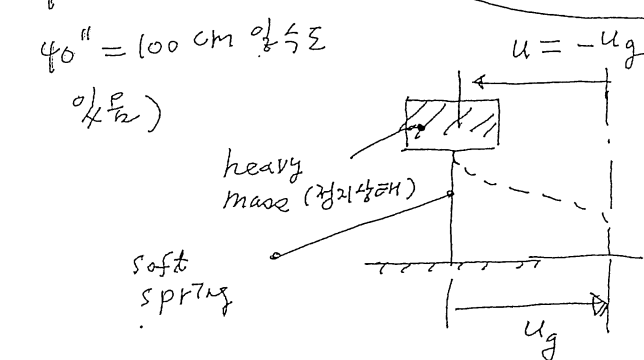 40" = 100 cm 일수도
있음)
u = -ug
heavy
mass (정지상태)
soft
spring
ug